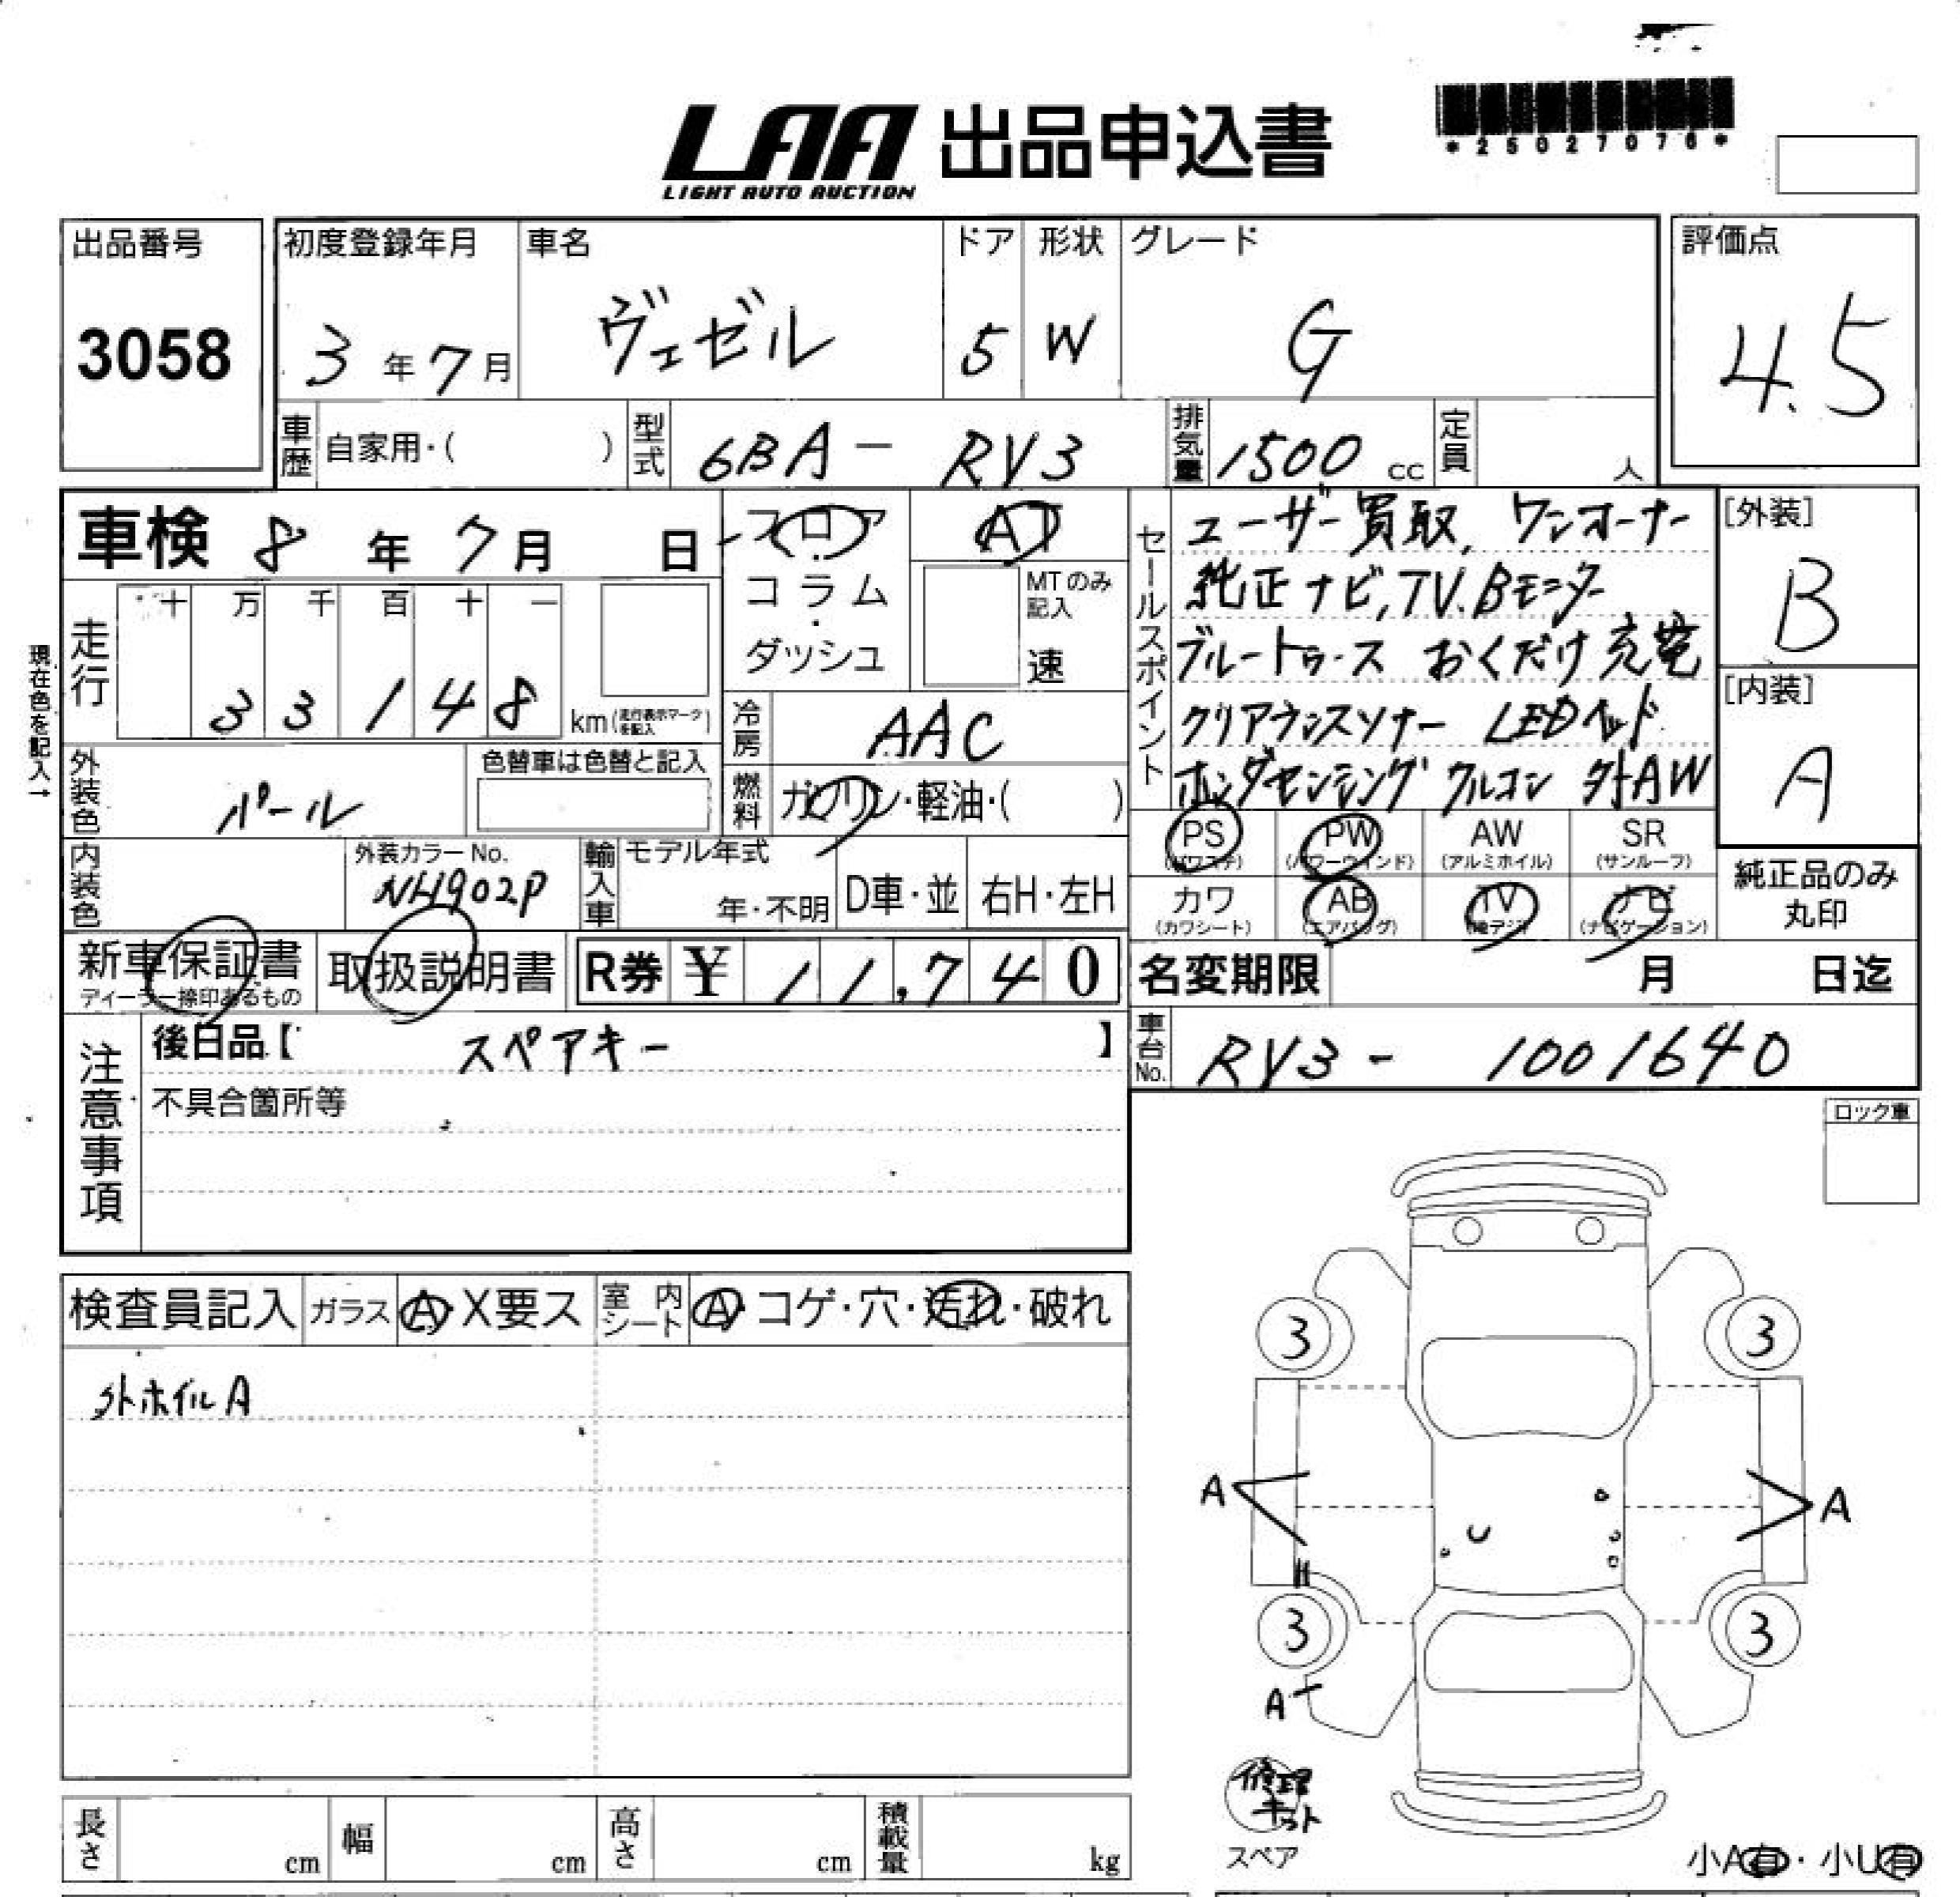 LAA 出品申込書
LIGHT AUTO AUCTION
*25027076*
出品番号
3058
初度登録年月
3年7月
車名
ヴェゼル
ドア
5
形状
W
グレード
G
評価点
4.5
車歴 自家用・( )
型式 6BA - RV3
排気量 1500 cc
定員 人
車検 8年7月 日
フロア・コラム・ダッシュ
AT
MTのみ記入
速
セールスポイント
ユーザー買取, ワンオーナー
純正ナビ, TV. Bモニター
ブルートゥース おくだけ充電
クリアランスソナー LEDヘッド
ホンダセンシング クルコン 外AW
[外装]
B
[内装]
A
走行
十 万 千 百 十 一
3 3 1 4 8 km (走行表示マークを記入)
現在色を記入→
冷房 AAC
燃料 ガソリン・軽油・( )
外装色 パール
色替車は色替と記入
内装色
外装カラーNo.
NH902P
輸入車 モデル年式
年・不明
D車・並
右H・左H
PS (パワステ)
PW (パワーウインド)
AW (アルミホイル)
SR (サンルーフ)
カワ (カワシート)
AB (エアバッグ)
TV (地デジ)
ナビ (ナビゲーション)
純正品のみ丸印
新車保証書
ディーラー捺印あるもの
取扱説明書
R券 ¥ 11,740
名変期限 月 日迄
車台No. RV3 - 1001640
注意事項
後日品【 スペアキー 】
不具合箇所等
ロック車
検査員記入 ガラス A・X要ス
室内シート A・コゲ・穴・汚れ・破れ
外ホイルA
3
3
A
A
3
3
A
修理キット
スペア
小A有・小U有
長さ cm
幅 cm
高さ cm
積載量 kg